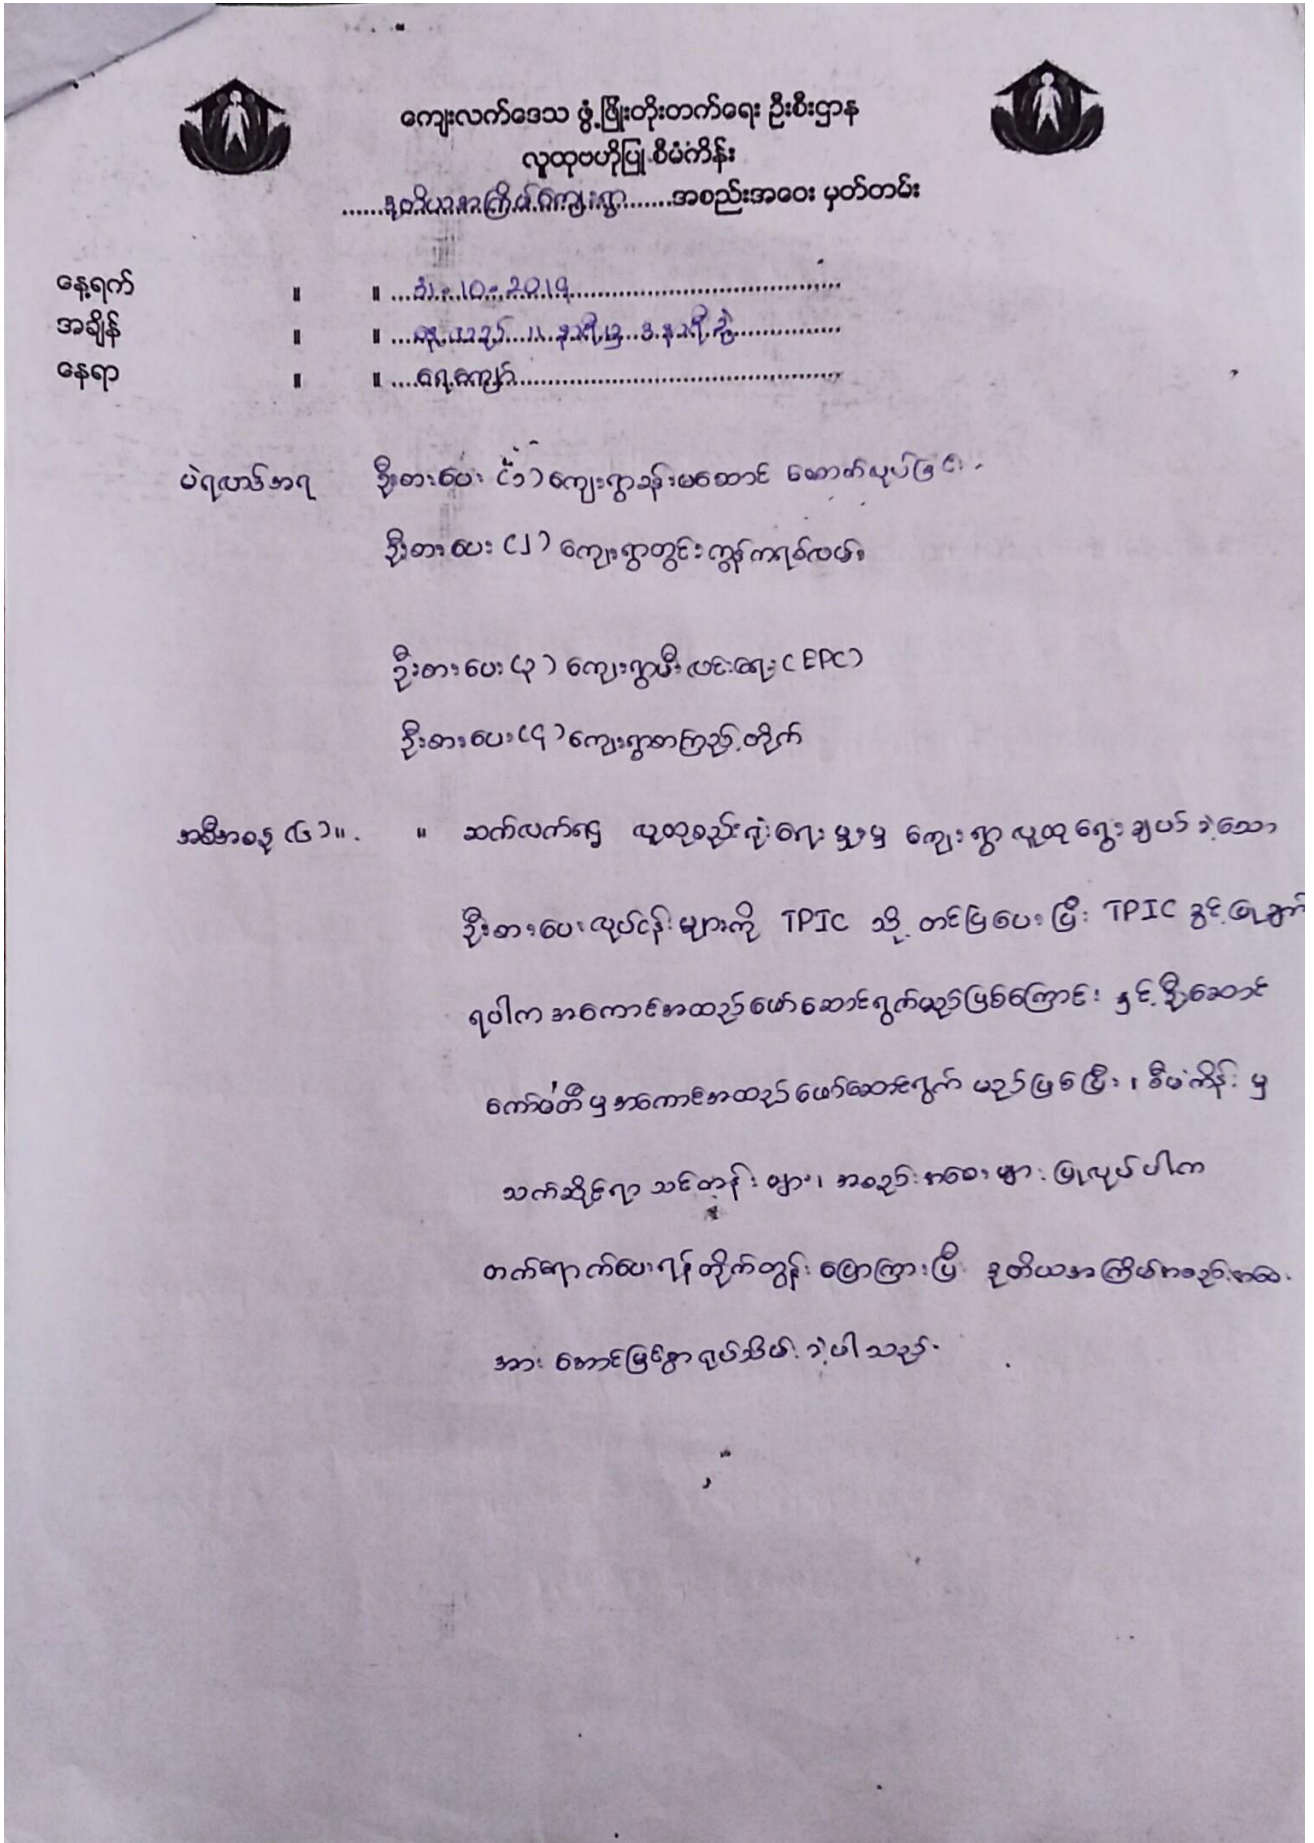 ကျေးလက်ဒေသ ဖွံ့ဖြိုးတိုးတက်ရေး ဦးစီးဌာန
လူထုဗဟိုပြု စီမံကိန်း
......ဒုတိယအကြိမ်ကျေးရွာ.......အစည်းအဝေး မှတ်တမ်း
နေ့ရက် ။ ။ ...31-10-2019...
အချိန် ။ ။ ... ၁၁ နာရီမှ ၁ နာရီခွဲ...
နေရာ ။ ။ ....ရေကျော်...
မဲရလာဒ်အရ ဦးစားပေး (၁) ကျေးရွာခန်းမဆောင် ဆောက်လုပ်ခြင်း
ဦးစားပေး (၂) ကျေးရွာတွင်းကွန်ကရစ်လမ်း
ဦးစားပေး (၃) ကျေးရွာမီးလင်းရေး (EPC)
ဦးစားပေး (၄) ကျေးရွာစာကြည့်တိုက်
အစီအစဉ် (၆) ။ ။ ဆက်လက်၍ လူထုစည်းရုံးရေးမှူးမှ ကျေးရွာလူထုရွေးချယ်ခဲ့သော
ဦးစားပေးလုပ်ငန်းများကို TPIC သို့ တင်ပြပေးပြီး TPIC ခွင့်ပြုချက်
ရပါက အကောင်အထည်ဖော်ဆောင်ရွက်မည်ဖြစ်ကြောင်း နှင့် ဦးဆောင်
ကော်မတီမှ အကောင်အထည်ဖော်ဆောင်ရွက် မည်ဖြစ်ပြီး ၊ စီမံကိန်းမှ
သက်ဆိုင်ရာ သင်တန်းများ၊ အစည်းအဝေးများ ပြုလုပ်ပါက
တက်ရောက်ပေးရန် တိုက်တွန်းပြောကြားပြီး ဒုတိယအကြိမ်အစည်းအဝေး
အား အောင်မြင်စွာ ရုပ်သိမ်းခဲ့ပါသည်။